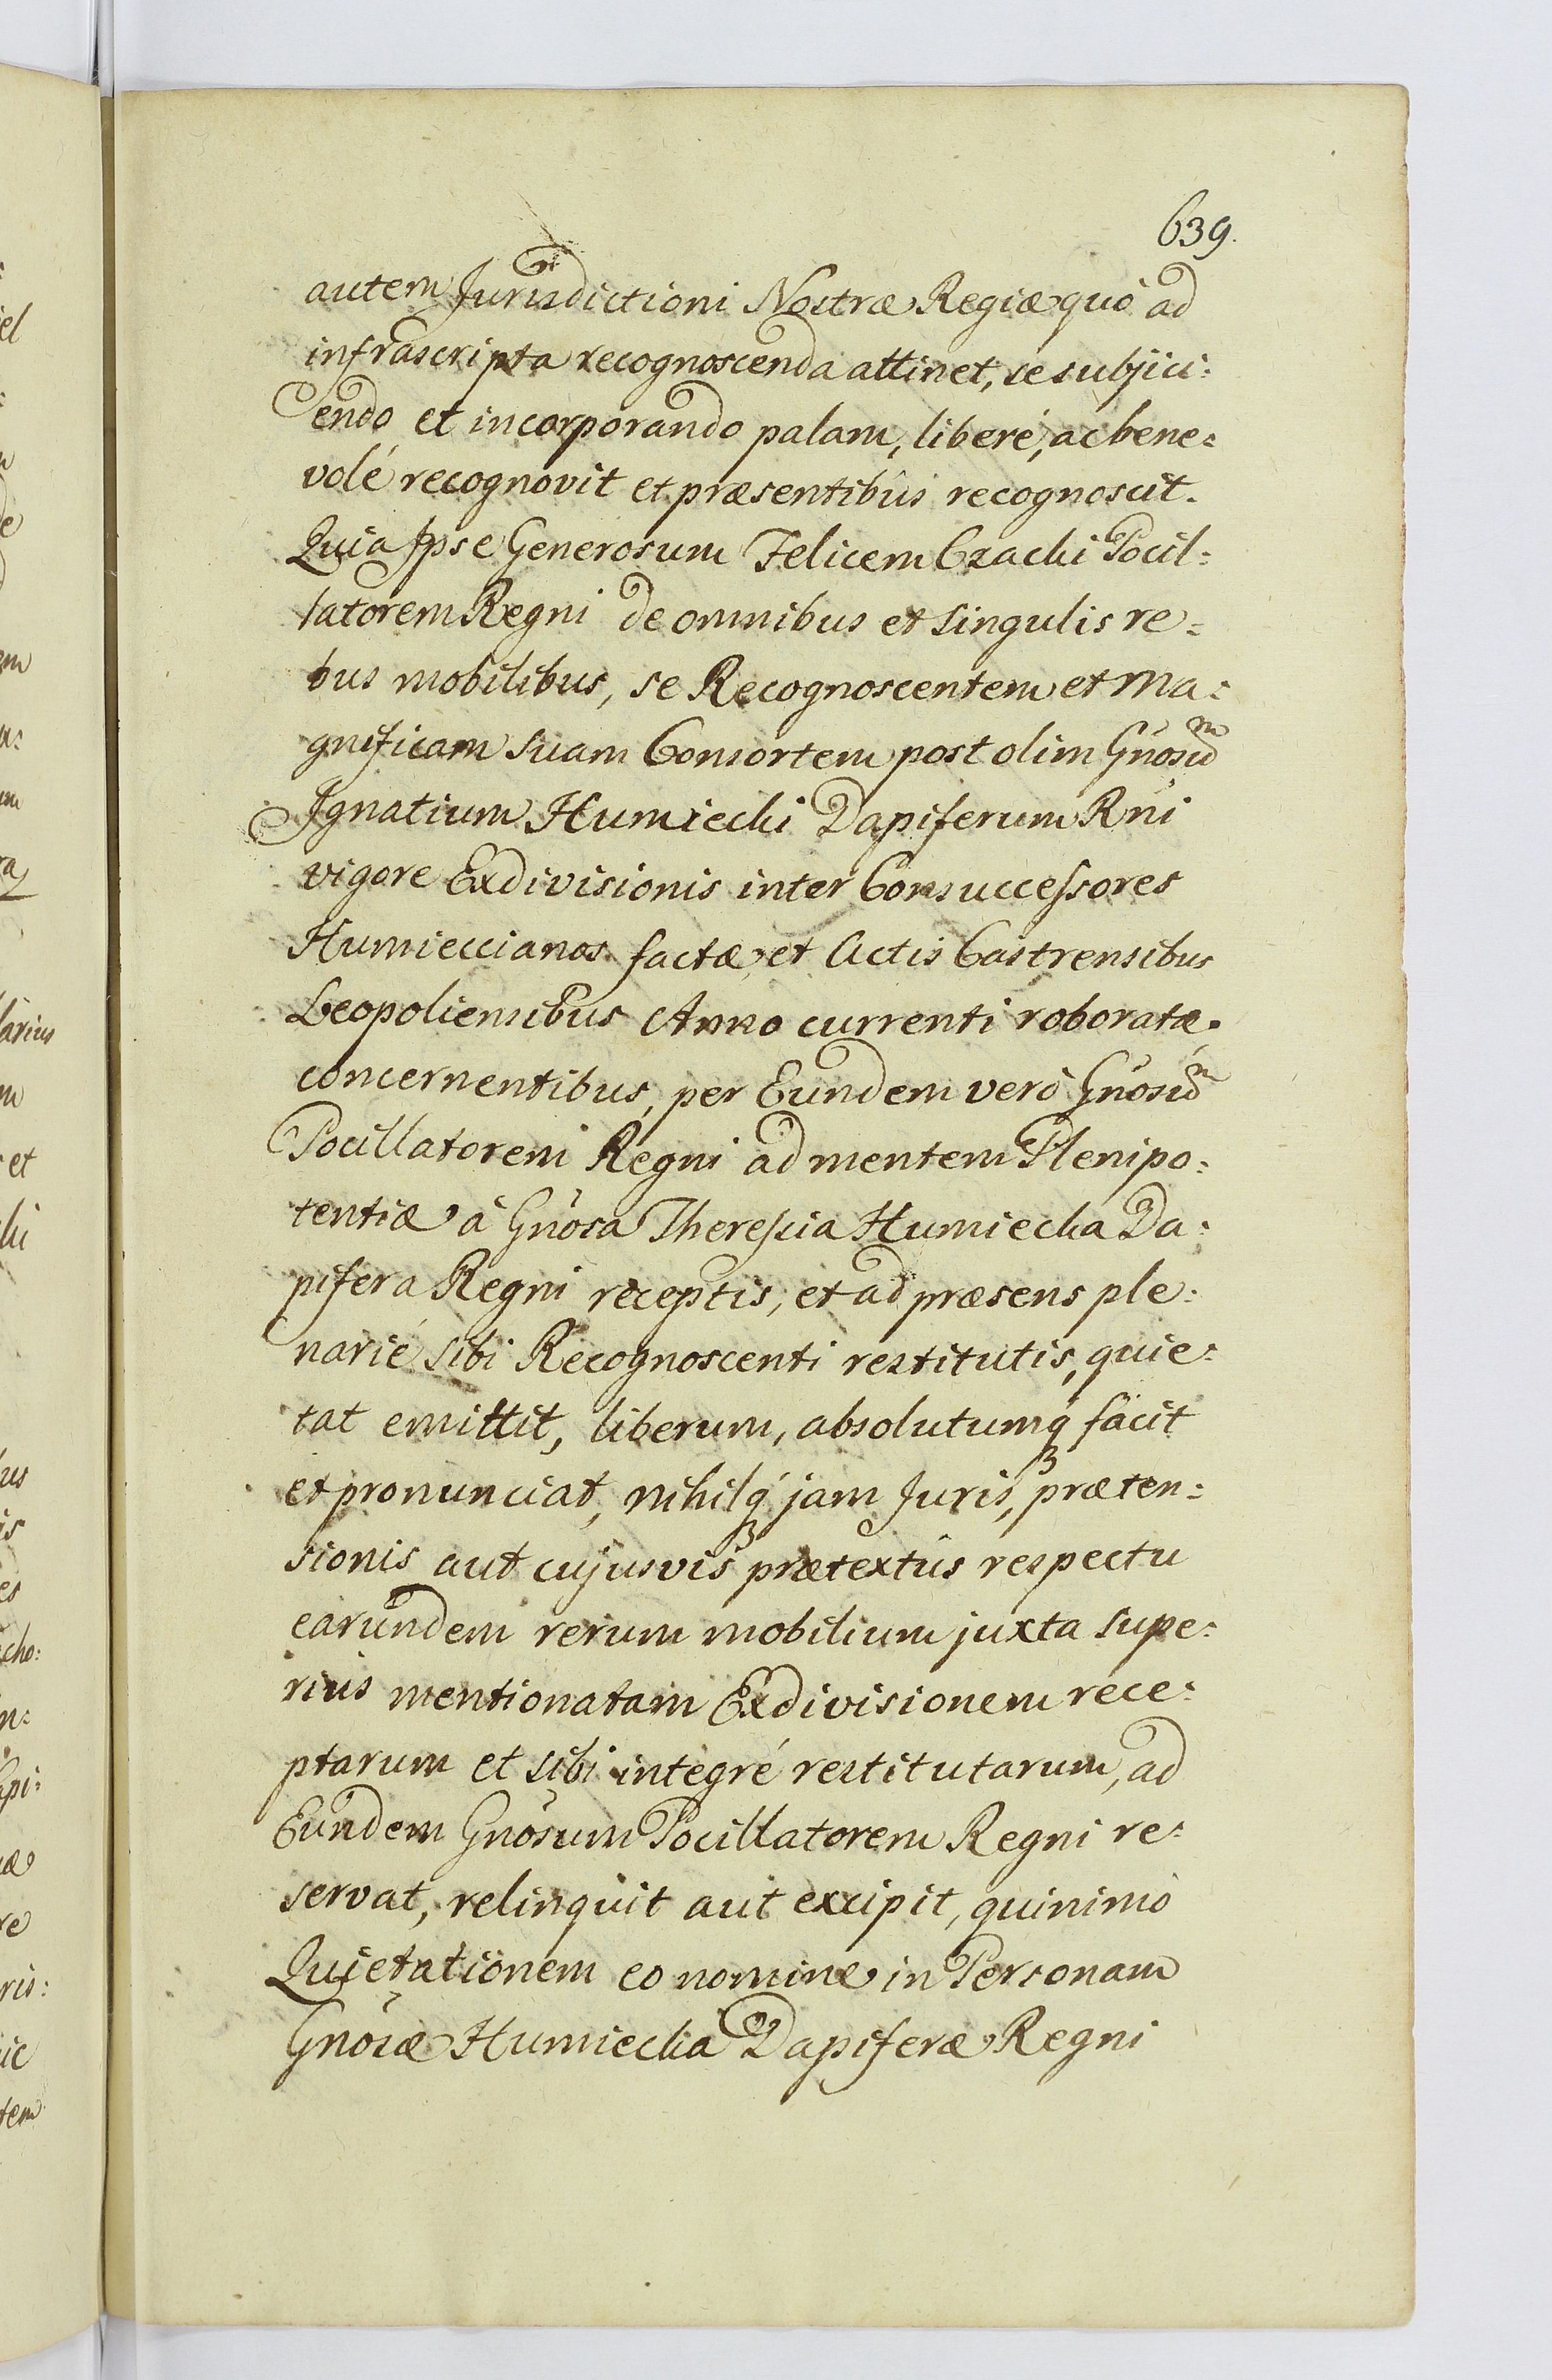 639.
autem Jurisdictioni Nostræ Regiæ quò ad
infrascripta recognoscenda attinet, se subjici:
endo et incorporando palam, liberé, ac bene=
volé recognovit et præsentibùs recognoscit.
Quia Ipse Generosum Felicem Czacki Pocil=
latorem Regni de omnibus et singulis re=
bus mobilibus, se Recognoscentem et Ma:
gnificam suam Consortem post olim Gnosum
Ignatium Humiecki Dapiferum Rni
vigore Exdivisionis inter Consuccessores
Humieccianos factæ et Actis Castrensibus
Leopoliensibus Anno currenti roboratæ
concernentibus, per Eundem verò Gnosum
Pocillatorem Regni ad mentem Plenipo:
tentiæ à Gnosa Theressia Humiecka Da:
pifera Regni receptis, et ad præsens ple:
narié sibi Recognoscenti restitutis, quie:
tat emittit, liberum, absolutumq́ facit
et pronunciat, nihilq́ jam Juris, præten:
sionis aut cujusvis prætextûs respectu
earundem rerum mobilium juxta supe:
rius mentionatam Exdivisionem rece:
ptarum et sibi integré restitutarum, ad
Eundem Gnosum Pocillatorem Regni re:
servat, relinquit aut excipit, quinimò
Quietationem eo nomine in Personam
Gnosæ Humiecka Dapiferæ Regni